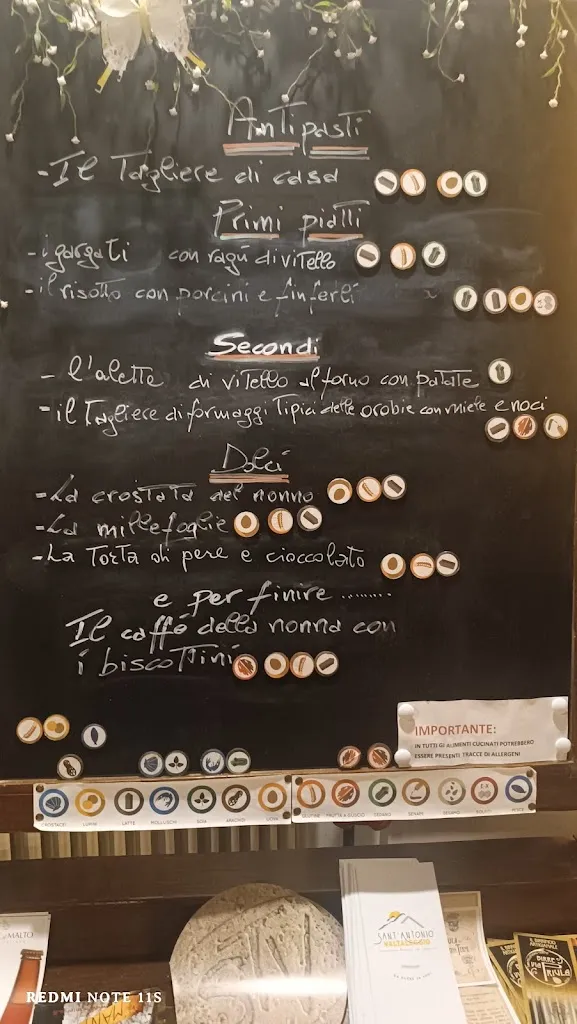 Antipasti
- Il Tagliere di casa
Primi piatti
- i gargati con ragù di vitello
- il risotto con porcini e finferli
Secondi
- l'alette di vitello al forno con patate
- il Tagliere di formaggi Tipici delle orobie con miele e noci
Dolci
- La crostata del nonno
- La millefoglie
- La Torta di pere e cioccolato
e per finire........
Il caffé della nonna con
i biscottini
IMPORTANTE:
IN TUTTI GI ALIMENTI CUCINATI POTREBBERO
ESSERE PRESENTI TRACCE DI ALLERGENI
CROSTACEI LUPINI LATTE MOLLUSCHI SOIA ARACHIDI UOVA GLUTINE FRUTTA A GUSCIO SEDANO SENAPE SESAMO SOLFITI PESCE
MALTO
SANT'ANTONIO
REDMI NOTE 11S